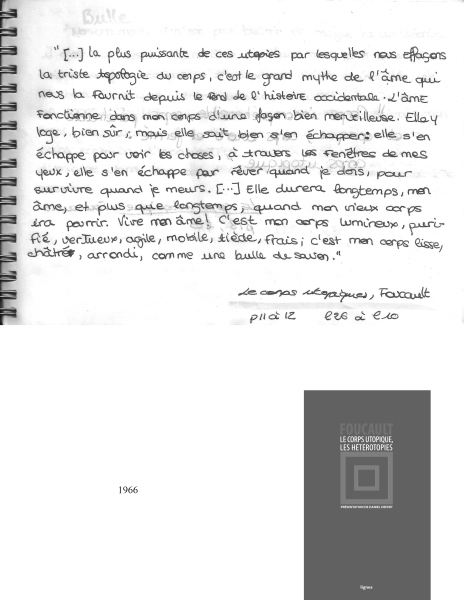 Bulle
"[...] la plus puissante de ces utopies par lesquelles nous effaçons
la triste topologie du corps, c'est le grand mythe de l'âme qui
nous la fournit depuis le fond de l'histoire occidentale. L'âme
fonctionne dans mon corps d'une façon bien merveilleuse. Elle y
loge, bien sûr, mais elle sait bien s'en échapper: elle s'en
échappe pour voir les choses, à travers les fenêtres de mes
yeux, elle s'en échappe pour rêver quand je dors, pour
survivre quand je meurs. [...] Elle durera longtemps, mon
âme, et plus que longtemps, quand mon vieux corps
ira pourrir. Vive mon âme! C'est mon corps lumineux, puri-
fié, vertueux, agile, mobile, tiède, frais; c'est mon corps lisse,
châtré, arrondi, comme une bulle de savon."
Le corps utopique, Foucault
p11 à 12 l26 à l10
1966
FOUCAULT
LE CORPS UTOPIQUE,
LES HÉTÉROTOPIES
PRÉSENTATION DE DANIEL DEFERT
lignes